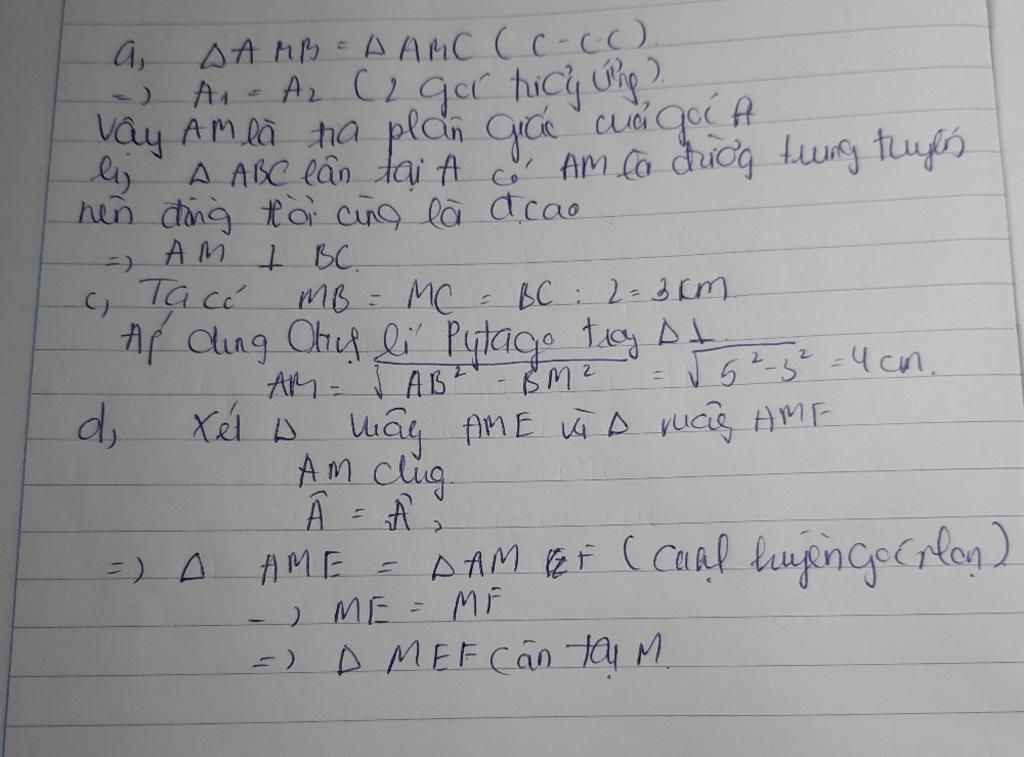 a, ΔAMB = ΔAMC (c-c-c).
=> A1 = A2 (2 góc tương ứng).
Vậy AM là tia phân giác của góc A
b, Δ ABC cân tại A có AM là đường trung tuyến
nên đồng thời cũng là đ.cao
=> AM ⊥ BC.
c, Ta có MB = MC = BC : 2 = 3 cm
Áp dụng định lí Pytago trong Δ⊥
AM = √AB² - BM² = √5²-3² = 4 cm.
d, Xét Δ vuông AME và Δ vuông AMF
AM chung
Â = Â,
=> Δ AME = ΔAMF (cạnh huyền góc nhọn)
-> ME = MF
=> Δ MEF cân tại M